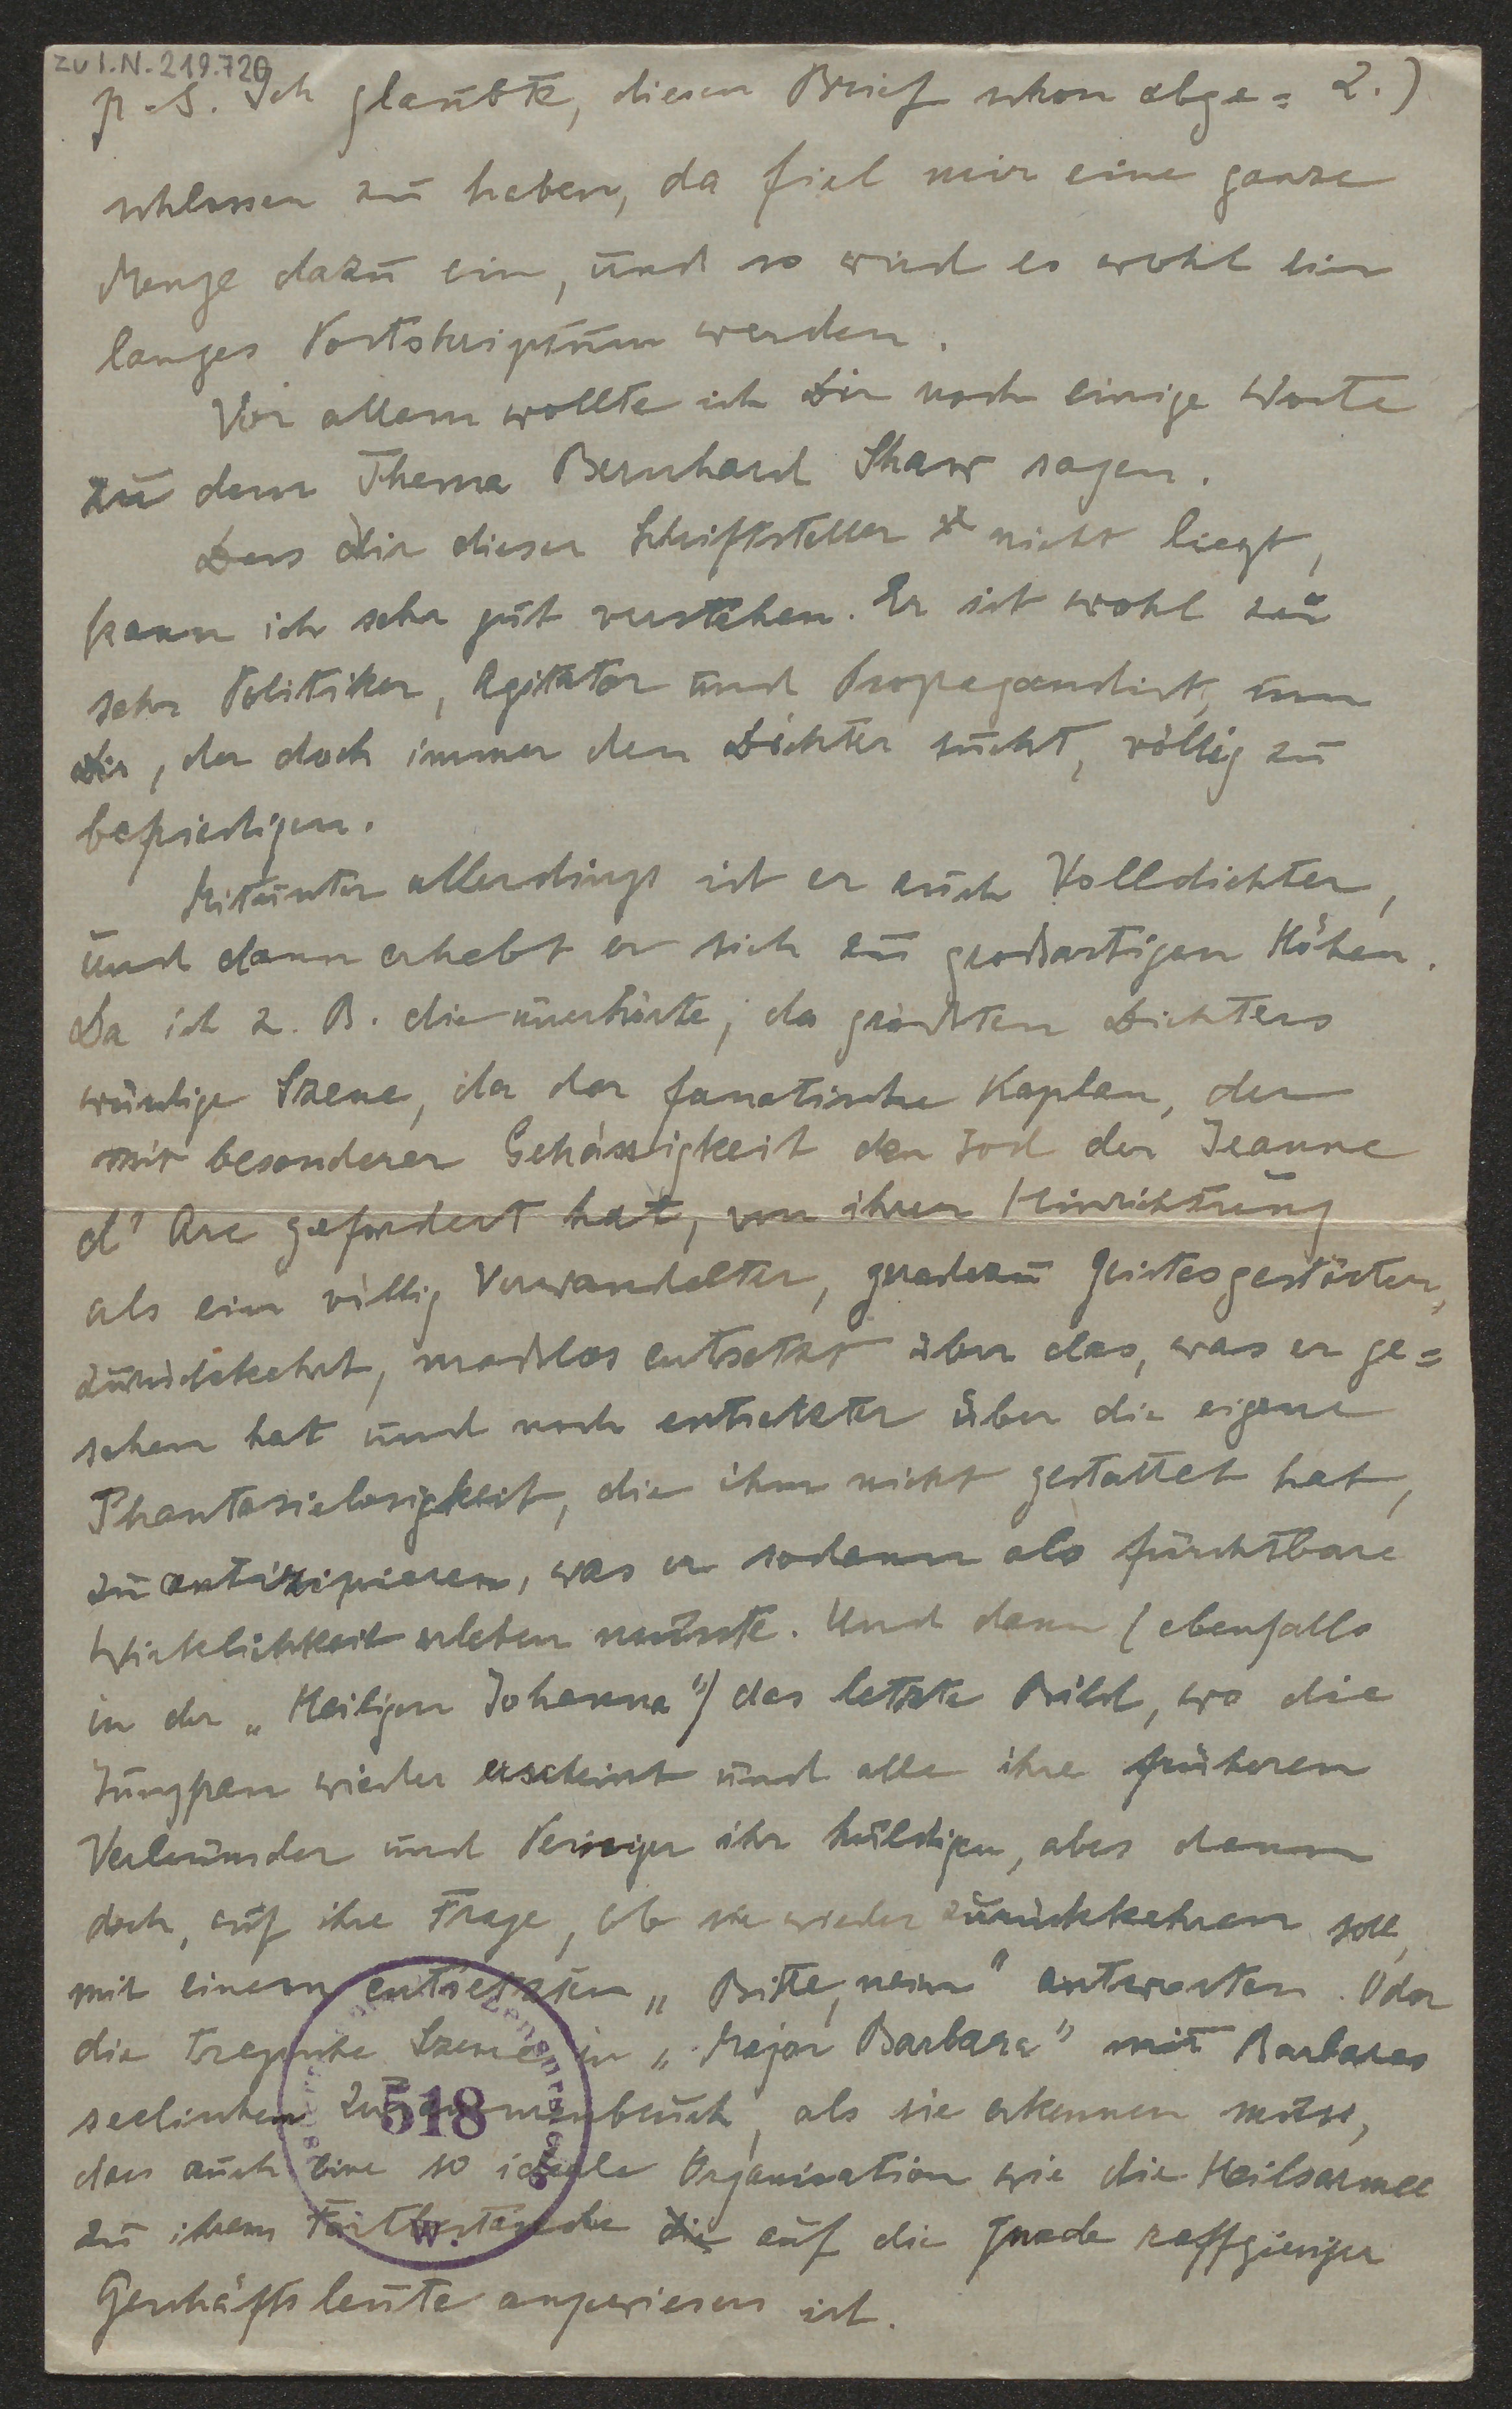 zu I.N. 219.720
p.S. Ich glaubte, diesen Brief schon abge= 2.)
schlossen zu haben, da fiel mir eine ganze
Menge dazu ein, und so wird es wohl ein
langes Postskriptum werden.
Vor allem wollte ich Dir noch einige Worte
zu dem Thema Bernhard Shaw sagen.
Dass Dir dieser Schriftsteller nicht liegt,
kann ich sehr gut verstehen. Er ist wohl zu
sehr Politiker, Agitator und Propagandist, um
Dir, der doch immer den Dichter sucht, völlig zu
befriedigen.
Mitunter allerdings ist er auch Volldichter,
und dann erhebt er sich zu großartigen Höhen.
Da ist z. B. die unerhörte, des größten Dichters
würdige Szene, da der fanatische Kaplan, der
mit besonderer Gehässigkeit den Tod der Jeanne
d'Arc gefordert hat, von ihrer Hinrichtung
als ein völlig Verwandelter, geradezu Geistesgestörter,
zurückkehrt, maßlos entsetzt über das, was er ge=
sehen hat und noch entsetzter über die eigene
Phantasielosigkeit, die ihm nicht gestattet hat,
zu antizipieren, was er sodann als furchtbare
Wirklichkeit erleben musste. Und dann (ebenfalls
in der „Heiligen Johanna") das letzte Bild, wo die
Jungfrau wieder erscheint und alle ihre früheren
Verleumder und Peiniger ihr huldigen, aber dann
doch, auf ihre Frage, ob sie wieder zurückkehren soll,
mit einem entsetzten „Bitte, nein" antworten. Oder
die tragische Szene in „Major Barbara" mit Barbaras
seelischen Zusammenbruch, als sie erkennen muss,
dass auch eine so ideale Organisation wie die Heilsarmee
zu ihrem Fortbestande die auf die Gnade raffgieriger
Geschäftsleute angewiesen ist.
518
W.